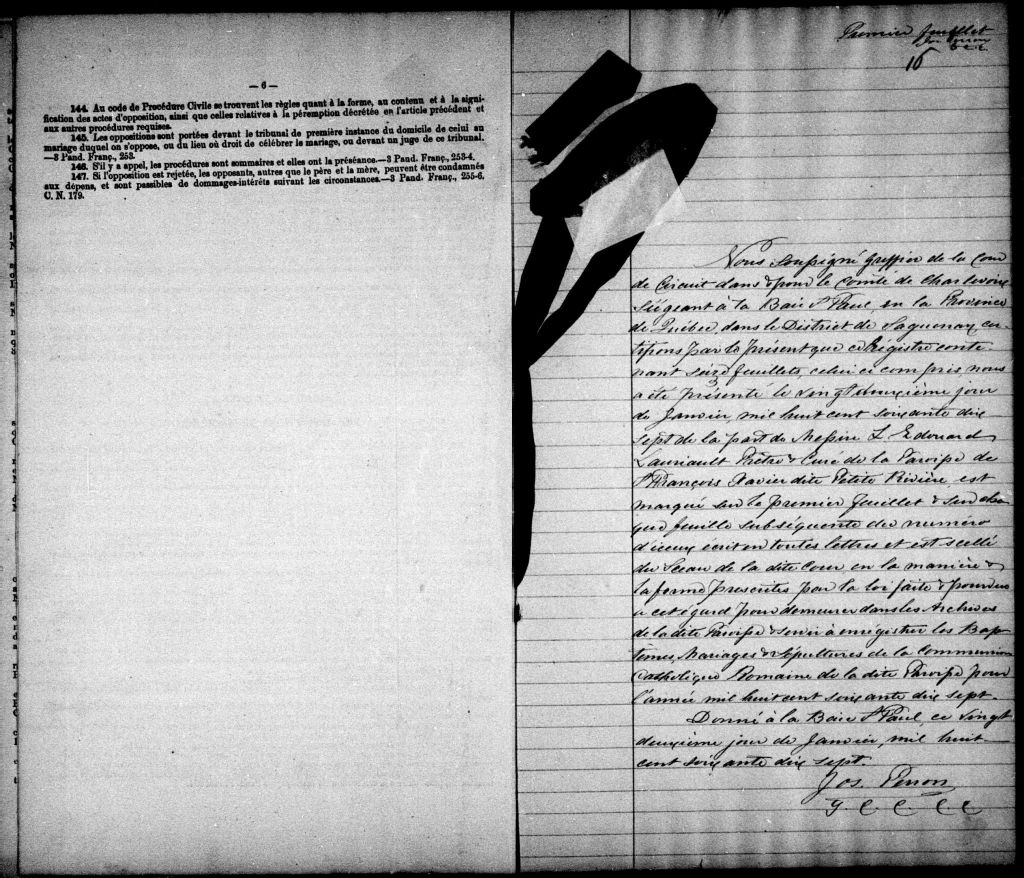 — 6 —
144. Au code de Procédure Civile se trouvent les règles quant à la forme, au contenu et à la signi-
fication des actes d'opposition, ainsi que celles relatives à la péremption décrétée en l'article précédent et
aux autres procédures requises.
145. Les oppositions sont portées devant le tribunal de première instance du domicile de celui au
mariage duquel on s'oppose, ou du lieu où droit de célébrer le mariage, ou devant un juge de ce tribunal.
—3 Pand. Franç., 253.
146. S'il y a appel, les procédures sont sommaires et elles ont la préséance.—3 Pand. Franç., 253-4.
147. Si l'opposition est rejetée, les opposants, autres que le père et la mère, peuvent être condamnés
aux dépens, et sont passibles de dommages-intérêts suivant les circonstances.—3 Pand. Franç., 255-6.
C. N. 179.
Premier feuillet
Jos Perron
G C C
16
Nous soussigné Greffier de la Cour
de Circuit dans & pour le Comté de Charlevoix
Siégeant à la Baie St Paul, en la Province
de Québec, dans le District de Saguenay, cer-
tifions par le présent que ce Régistre conte-
nant seize feuillets, celui ci compris nous
a été présenté le vingt deuxième jour
de Janvier mil huit cent soixante dix
sept de la part de Messire L Edouard
Lauriault Prêtre & Curé de la Paroisse de
St François Xavier dite Petite Rivière est
marqué sur le premier feuillet & sur cha
que feuille subséquente du numéro
d'iceux écrit en toutes lettres et est scellé
du Sceau de la dite Cour en la manière &
la forme prescrites par la loi faite & pourvue
à cet égard pour demeurer dans les Archives
de la dite Paroisse & servir à enrégistrer les Bap-
têmes, Mariages & Sépultures de la Communion
Catholique Romaine de la dite Paroisse pour
l'année mil huit cent soixante dix sept.
Donné à la Baie St Paul, ce vingt
deuxième jour de Janvier, mil huit
cent soixante dix sept.
Jos. Perron
G. C. C. C. C